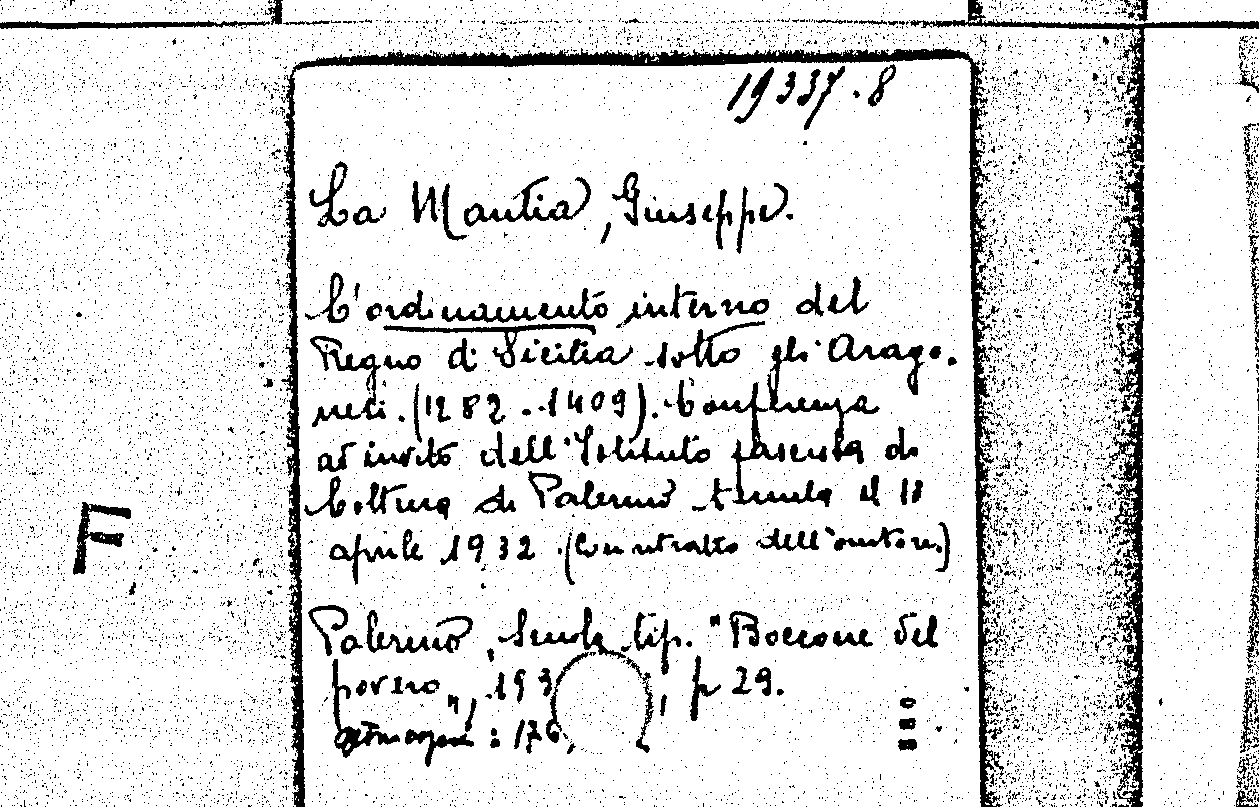 19337.8
La Mantia, Giuseppe.
L'ordinamento interno del
Regno di Sicilia sotto gli Arago.
nesi. (1282-1409). Conferenza
ad invito dell'Istituto fascista di
Coltura di Palermo tenuta il 18
aprile 1932. (Con ritratto dell'autore)
F
Palermo, Scuola tip. "Boccone del
povero", 193 , p 29.
: 176,